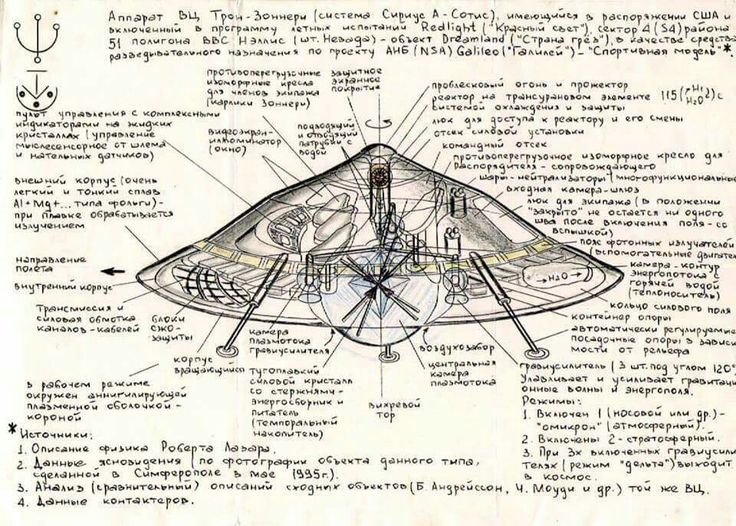 Аппарат ВЦ Трон-Зоннери (система Сириус А-Сотис), имеющийся в распоряжении США и
включенный в программу летных испытаний Redlight ("Красный свет"), сектор 4 (S4) района
51 полигона ВВС Нэллис (шт. Невада) - объект Dreamland ("Страна грёз"), в качестве средства
разведывательного назначения по проекту АНБ (NSA) Galileo ("Галилей") - "Спортивная модель" *
противоперегрузочные
изоморфные кресла
для членов экипажа
(карлики Зоннери)
защитное
экранное
покрытие
проблесковый огонь и прожектор
реактор на трансурановом элементе 115
с системой охлаждения и защиты
люк для доступа к реактору и его смены
отсек силовой установки
командный отсек
противоперегрузочное изоморфное кресло для
Распорядителя - сопровождающего
шары-нейтрализаторы (многофункциональные)
входная камера-шлюз
люк для экипажа (в положении
"закрыто" не остается ни одного
шва после включения поля - со
вспышкой)
пояс фотонных излучателей
(вспомогательные двигатели)
камера - контур
энергопотока с
горячей водой
(теплоноситель)
H₂O
кольцо силового поля
контейнер опоры
автоматически регулируемые
посадочные опоры в зависи
мости от рельефа
пульт управления с комплексными
индикаторами на жидких
кристаллах (управление
мыслесенсорное от шлема
и нательных датчиков)
видеоэкран-
иллюминатор
(окно)
подводящий
и отводящий
патрубки с
водой
внешний корпус (очень
легкий и тонкий сплав
Al+Mg+... типа фольги)-
при плавке обрабатывается
излучением
направление
полета
внутренний корпус
Трансмиссия и
силовая обмотка
каналов-кабелей
блоки
СЖО-
защиты
корпус
вращающийся
камера
плазмотока
гравиусилителя
тугоплавкий
силовой кристалл
со стержнями-
энергосборник и
питатель
(темпоральный
накопитель)
вихревой
тор
воздухозабор
центральная
камера
плазмотока
гравиусилитель (3 шт. под углом 120°)
Улавливает и усиливает гравитаци
онные волны и энергополя.
Режимы:
1. Включен 1 (носовой или др.) -
"омикрон" (атмосферный).
2. Включены 2 - стратосферный.
3. При 3х включенных гравиусили
телях (режим "дельта") выходит
в космос.
в рабочем режиме
окружен аннигилирующей
плазменной оболочкой-
короной
* Источники:
1. Описание физика Роберта Лазара.
2. Данные ясновидения (по фотографии объекта данного типа,
сделанной в Симферополе в мае 1995г.).
3. Анализ (сравнительный) описаний сходных объектов (Б. Андрейссон, Ч. Моуди и др.) той же ВЦ.
4. Данные контактеров.